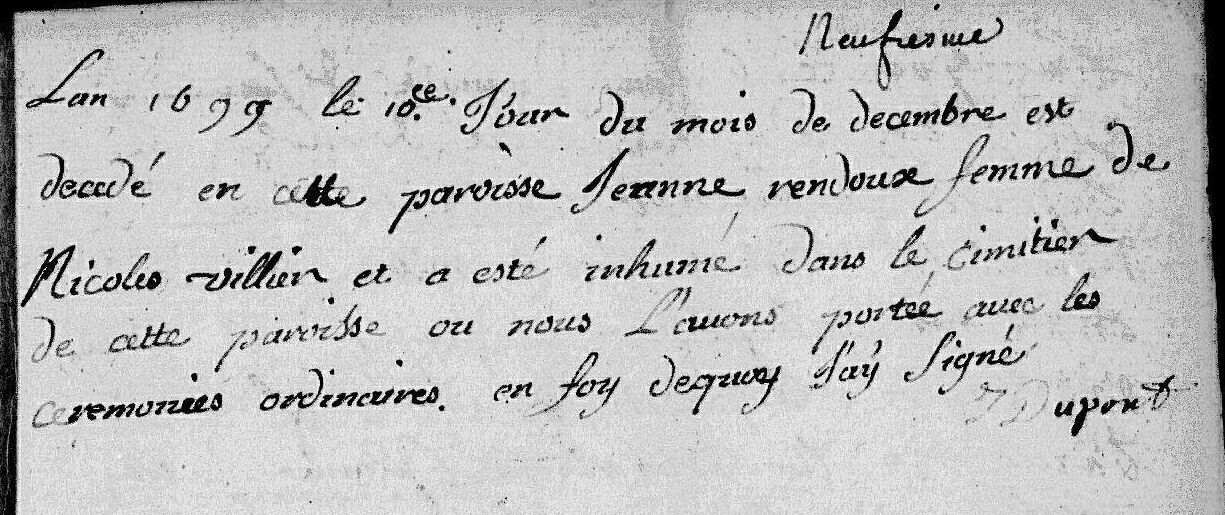 Neufiesme
Lan 1699 le 10.ce Jour du mois de decembre est
decedé en cette paroisse Jeanne rendoux femme de
Nicoles villier et a esté inhumé dans le cimitier
de cette paroisse ou nous l'auons portée avec les
ceremonies ordinaires. en foy dequoy J'aÿ signé
J Dupont